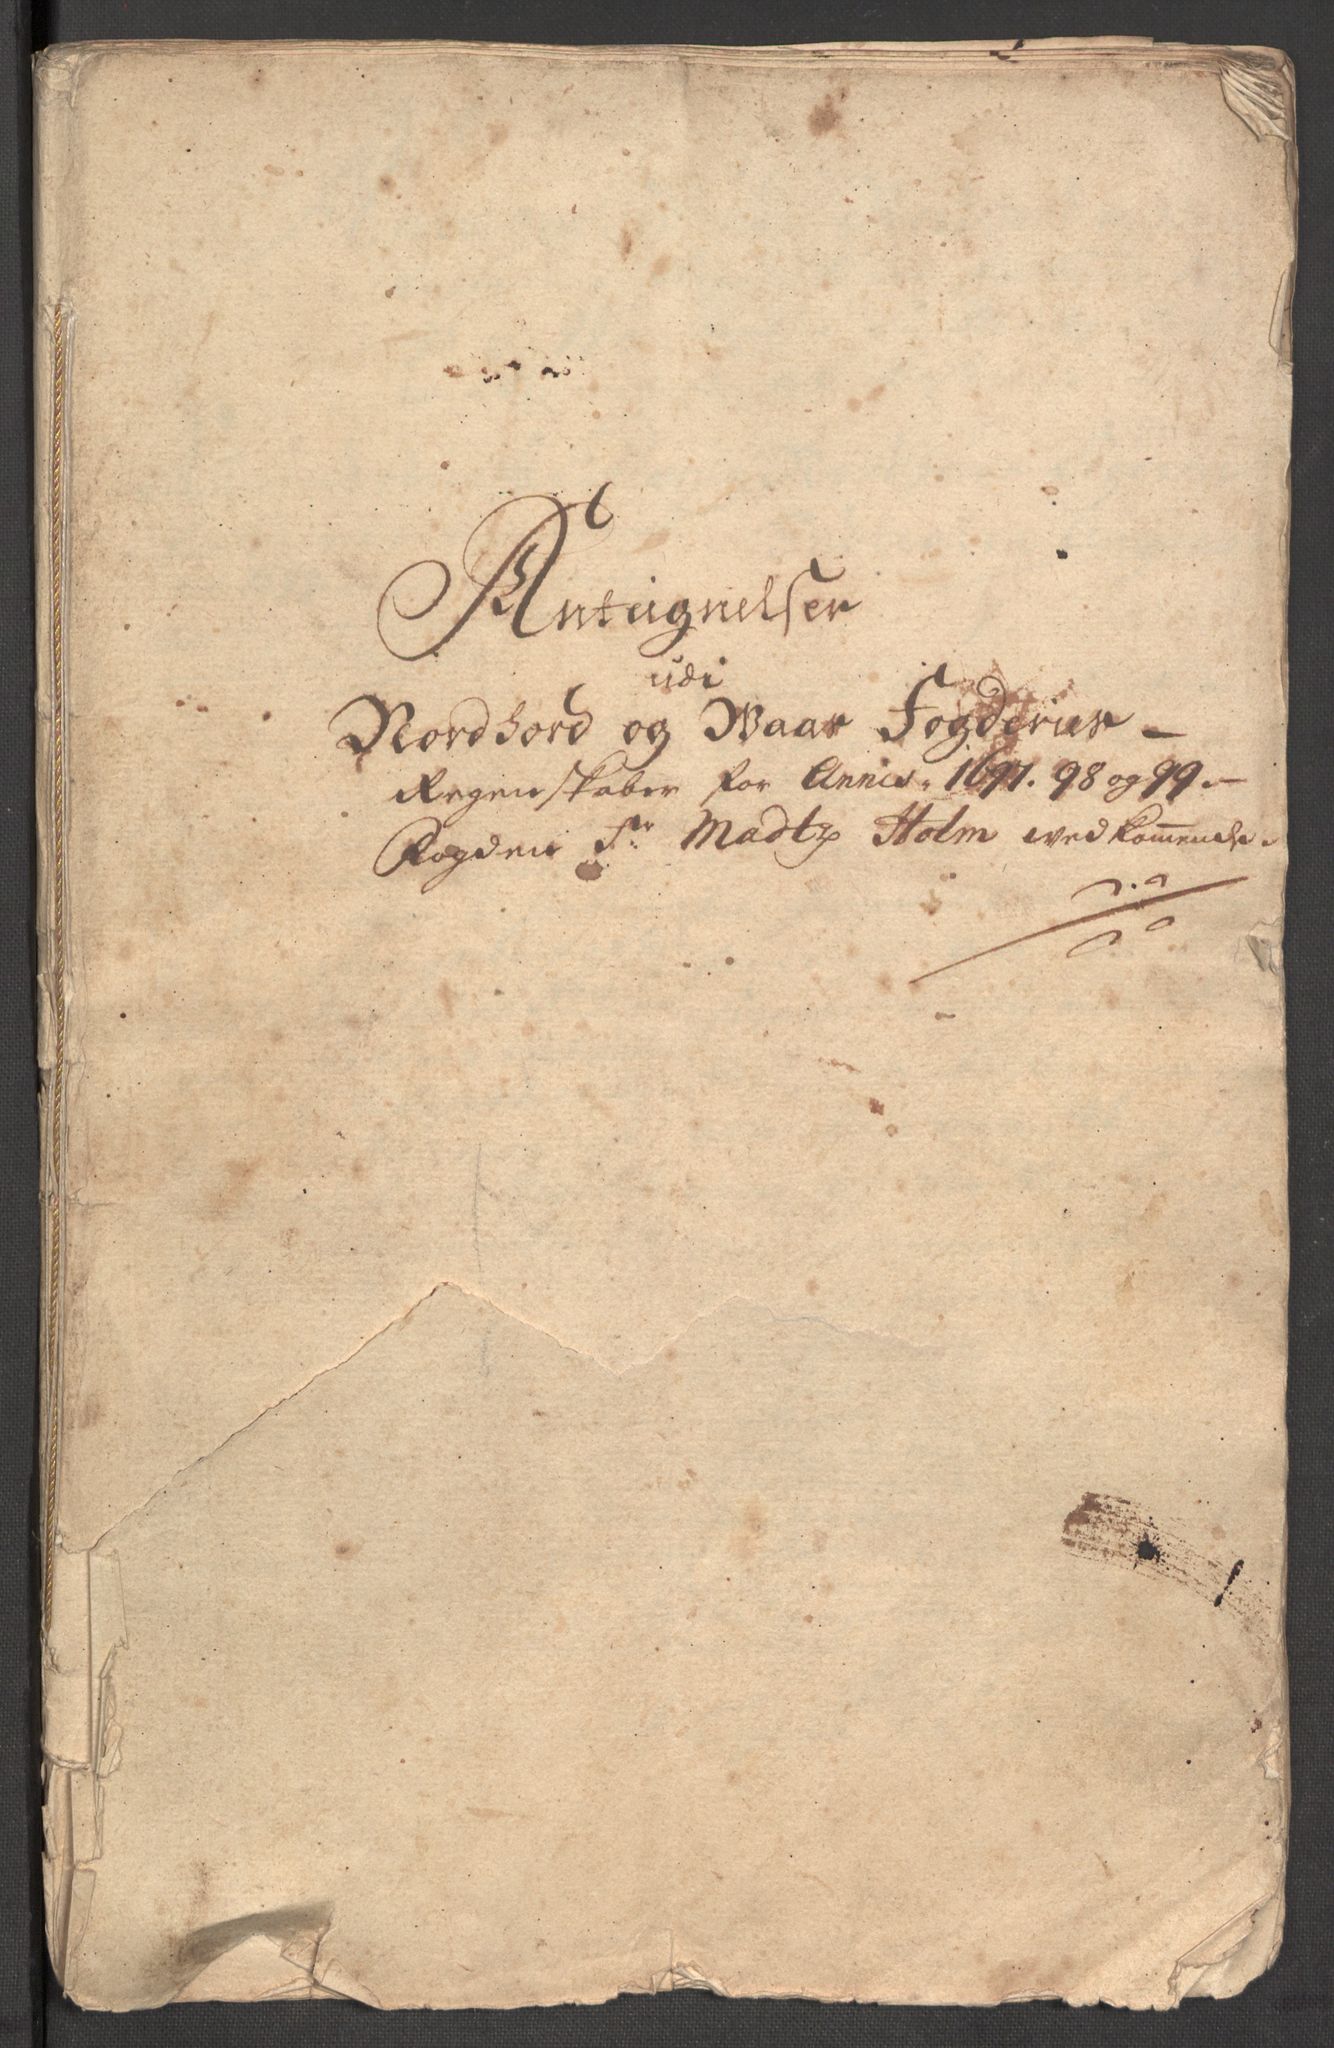 Antegnelser
udi
Nordhord og Waas Fogderier
Regenskaber for Annis. 1697. 98 og 99.
Fogden Sr. Madtz Holm vedkommende.